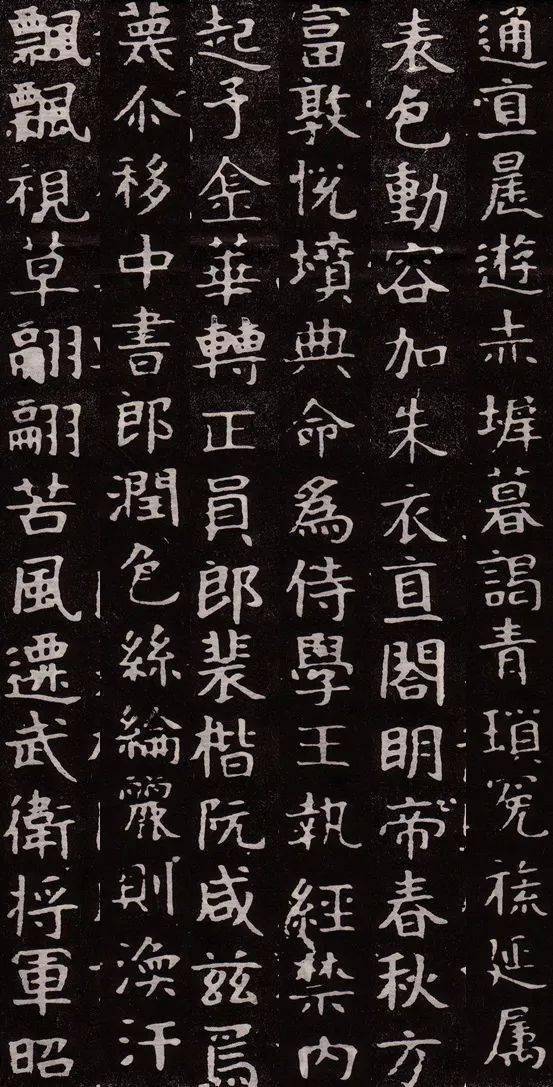 通直晨遊赤墀暮謁青瑣冕旒延属
表色動容加朱衣直閤明帝春秋方
富敦悦墳典命為侍學王執經禁内
起予金華轉正員郎裴楷阮咸兹焉
蔑尒移中書郎潤色絲綸麗則渙汗
飄飄視草翩翩苦風遷武衛将軍昭